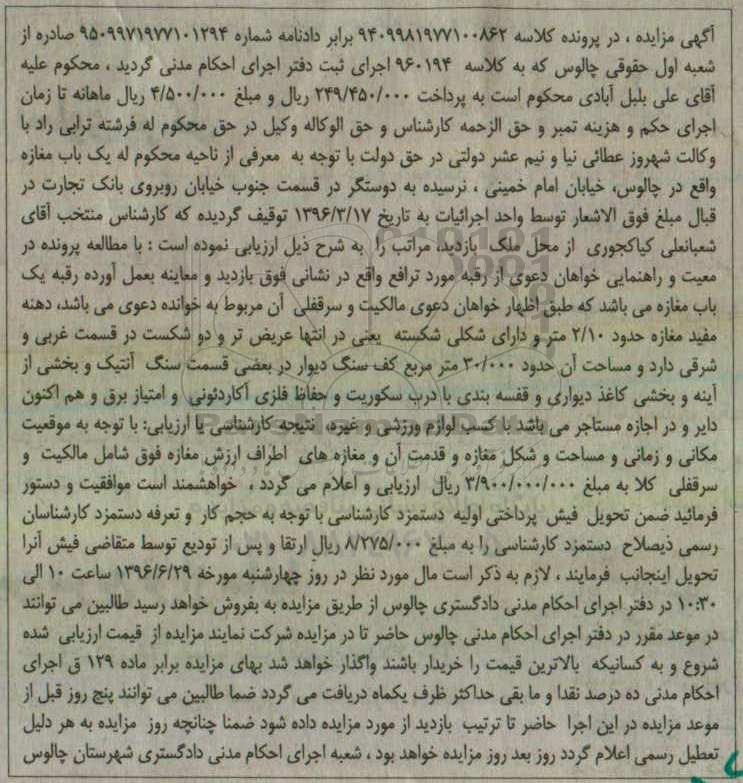 آگهی مزایده ، در پرونده کلاسه ۹۴۰۹۹۸۱۹۷۷۱۰۰۸۶۲ برابر دادنامه شماره ۹۵۰۹۹۷۱۹۷۷۱۰۱۲۹۴ صادره از
شعبه اول حقوقی چالوس که به کلاسه ۹۶۰۱۹۴ اجرای ثبت دفتر اجرای احکام مدنی گردید ، محکوم علیه
آقای علی بلبل آبادی محکوم است به پرداخت ۲۴۹/۴۵۰/۰۰۰ ریال و مبلغ ۴/۵۰۰/۰۰۰ ریال ماهانه تا زمان
اجرای حکم و هزینه تمبر و حق الزحمه کارشناس و حق الوکاله وکیل در حق محکوم له فرشته ترابی راد با
وکالت شهروز عطائی نیا و نیم عشر دولتی در حق دولت با توجه به معرفی از ناحیه محکوم له یک باب مغازه
واقع در چالوس، خیابان امام خمینی ، نرسیده به دوستگر در قسمت جنوب خیابان روبروی بانک تجارت در
قبال مبلغ فوق الاشعار توسط واحد اجرائیات به تاریخ ۱۳۹۶/۳/۱۷ توقیف گردیده که کارشناس منتخب آقای
شعبانعلی کیاکجوری از محل ملک بازدید، مراتب را به شرح ذیل ارزیابی نموده است : با مطالعه پرونده در
معیت و راهنمایی خواهان دعوی از رقبه مورد ترافع واقع در نشانی فوق بازدید و معاینه بعمل آورده رقبه یک
باب مغازه می باشد که طبق اظهار خواهان دعوی مالکیت و سرقفلی آن مربوط به خوانده دعوی می باشد، دهنه
مفید مغازه حدود ۲/۱۰ متر و دارای شکلی شکسته یعنی در انتها عریض تر و دو شکست در قسمت غربی و
شرقی دارد و مساحت آن حدود ۳۰/۰۰۰ متر مربع کف سنگ دیوار در بعضی قسمت سنگ آنتیک و بخشی از
آینه و بخشی کاغذ دیواری و قفسه بندی با درب سکوریت و حفاظ فلزی آکاردئونی و امتیاز برق و هم اکنون
دایر و در اجازه مستاجر می باشد با کسب لوازم ورزشی و غیره، نتیجه کارشناسی یا ارزیابی: با توجه به موقعیت
مکانی و زمانی و مساحت و شکل مغازه و قدمت آن و مغازه های اطراف ارزش مغازه فوق شامل مالکیت و
سرقفلی کلا به مبلغ ۳/۹۰۰/۰۰۰/۰۰۰ ریال ارزیابی و اعلام می گردد ، خواهشمند است موافقیت و دستور
فرمائید ضمن تحویل فیش پرداختی اولیه دستمزد کارشناسی با توجه به حجم کار و تعرفه دستمزد کارشناسان
رسمی ذیصلاح دستمزد کارشناسی را به مبلغ ۸/۲۷۵/۰۰۰ ریال ارتقا و پس از تودیع توسط متقاضی فیش آنرا
تحویل اینجانب فرمایند ، لازم به ذکر است مال مورد نظر در روز چهارشنبه مورخه ۱۳۹۶/۶/۲۹ ساعت ۱۰ الی
۱۰:۳۰ در دفتر اجرای احکام مدنی دادگستری چالوس از طریق مزایده به بفروش خواهد رسید طالبین می توانند
در موعد مقرر در دفتر اجرای احکام مدنی چالوس حاضر تا در مزایده شرکت نمایند مزایده از قیمت ارزیابی شده
شروع و به کسانیکه بالاترین قیمت را خریدار باشند واگذار خواهد شد بهای مزایده برابر ماده ۱۲۹ ق اجرای
احکام مدنی ده درصد نقدا و ما بقی حداکثر ظرف یکماه دریافت می گردد ضما طالبین می توانند پنج روز قبل از
موعد مزایده در این اجرا حاضر تا ترتیب بازدید از مورد مزایده داده شود ضمنا چنانچه روز مزایده به هر دلیل
تعطیل رسمی اعلام گردد روز بعد روز مزایده خواهد بود ، شعبه اجرای احکام مدنی دادگستری شهرستان چالوس